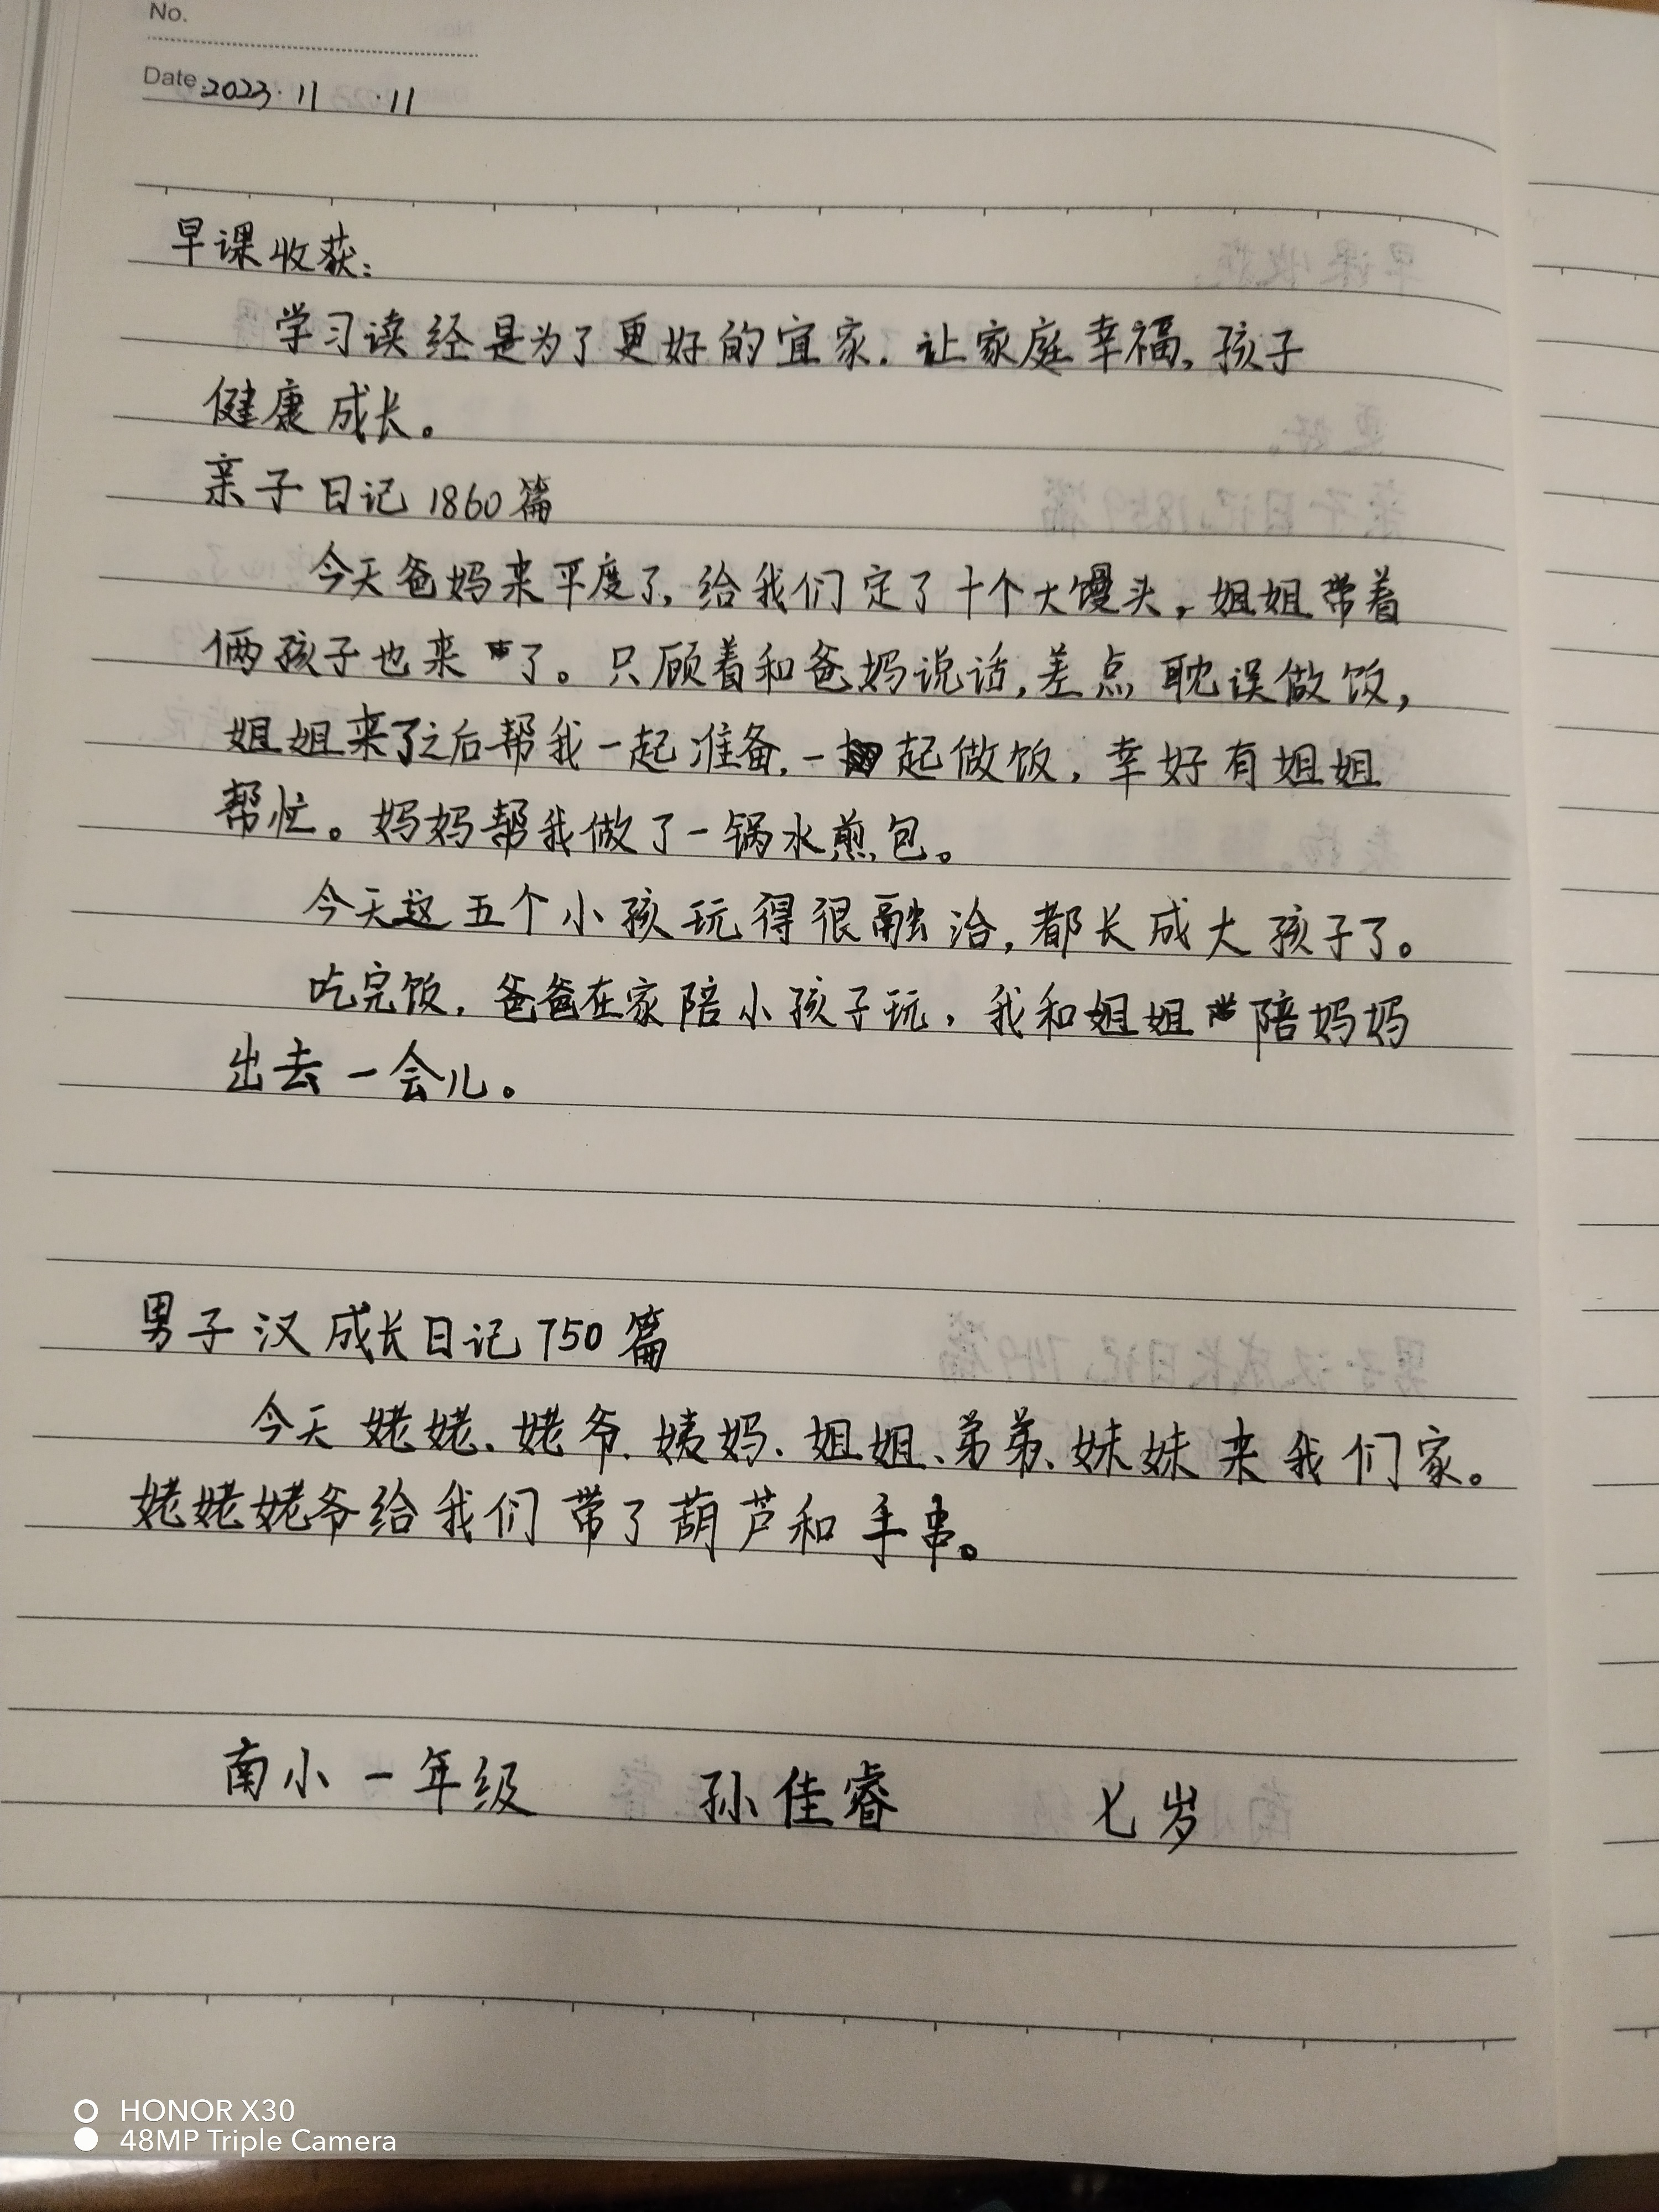 No.
Date 2023·11·11
早课收获:
学习读经是为了更好的宜家.让家庭幸福,孩子
健康成长。
亲子日记1860篇
今天爸妈来平度了,给我们定了十个大馒头,姐姐带着
俩孩子也来了。只顾着和爸妈说话,差点耽误做饭,
姐姐来了之后帮我一起准备,一起做饭,幸好有姐姐
帮忙。妈妈帮我做了一锅水煎包。
今天这五个小孩玩得很融洽,都长成大孩子了。
吃完饭,爸爸在家陪小孩子玩,我和姐姐陪妈妈
出去一会儿。
男子汉成长日记750篇
今天姥姥、姥爷、姨妈、姐姐、弟弟、妹妹来我们家。
姥姥姥爷给我们带了葫芦和手串。
南小一年级 孙佳睿 七岁
HONOR X30
48MP Triple Camera